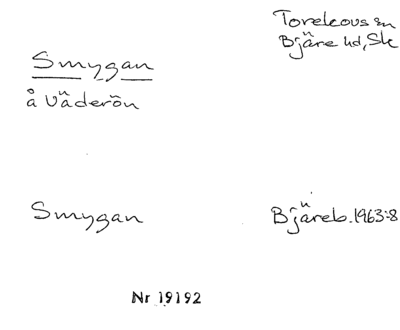 Torekovs sn
Bjäre hd, Sk
Smygan
å Väderön
Smygan
Bjäreb. 1963:8
Nr 19192